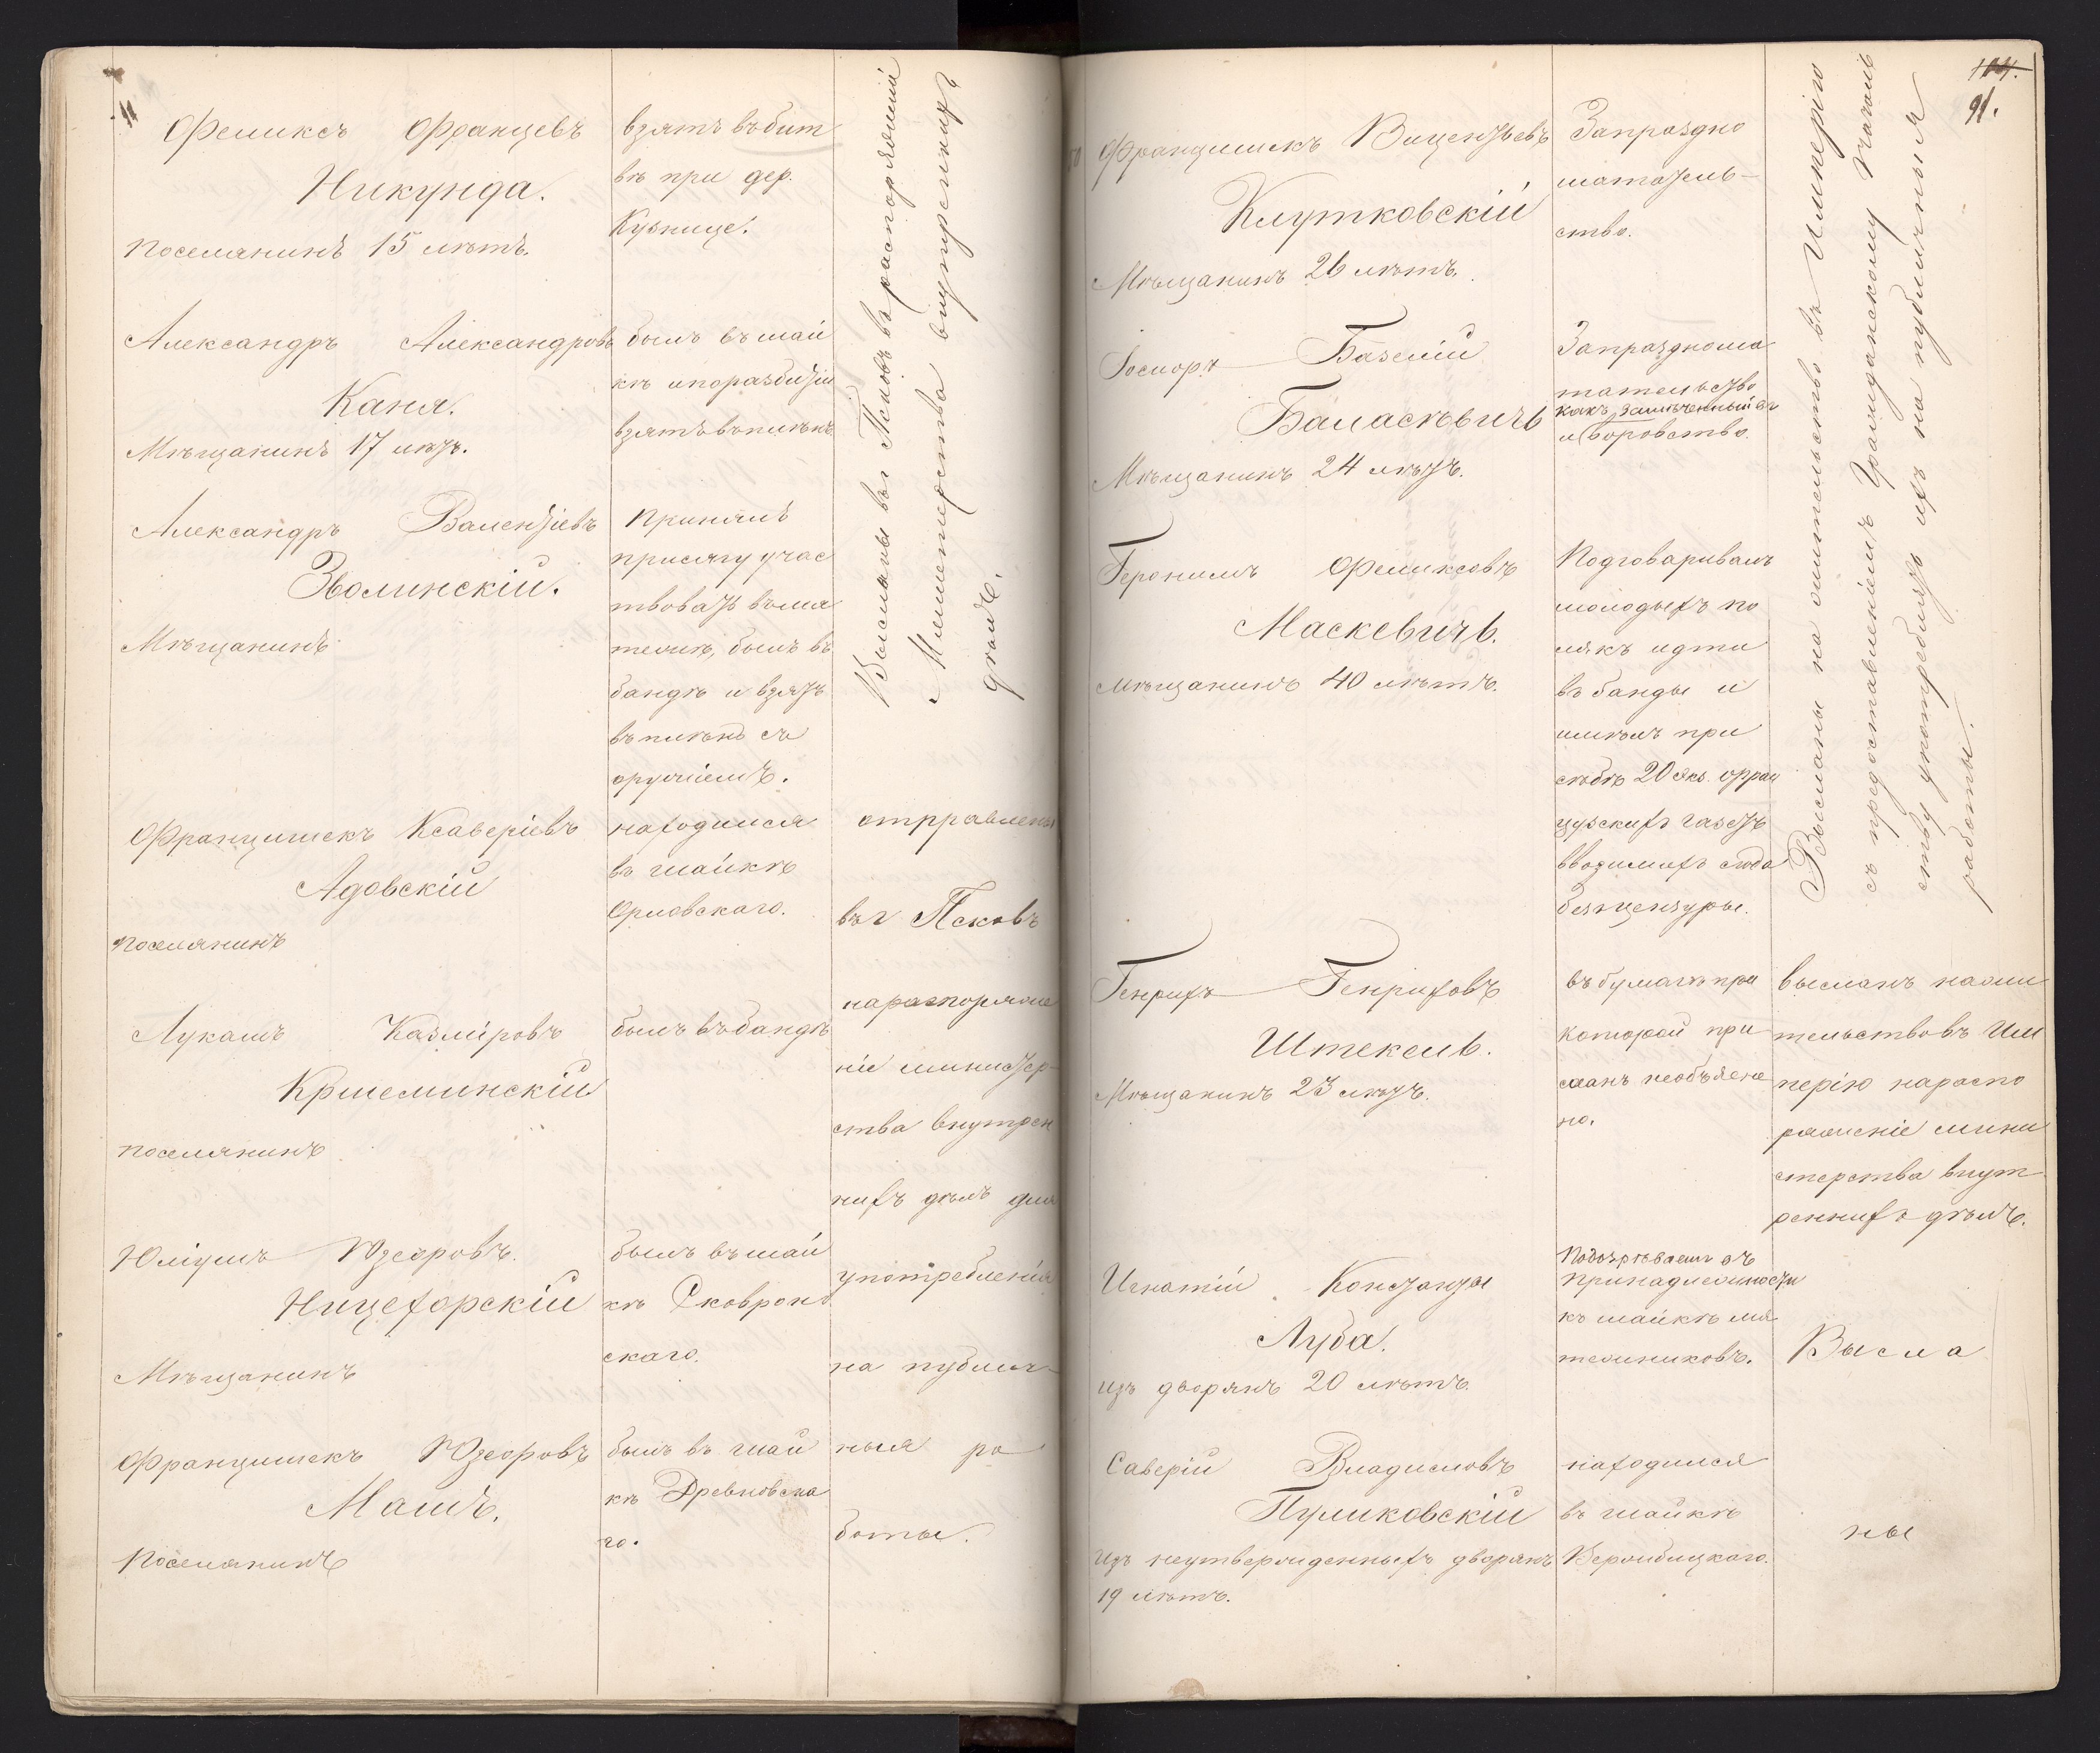 Феликсъ Францевъ
Никунда.
Поселянинъ 15 лѣтъ.
взятъ въ бит
вѣ при дер.
Кузнице.
Александръ Александровъ
Каня.
Мѣщанинъ 17 лѣтъ.
былъ въ шай
кѣ и по разбитіи
взятъ въ плѣнъ
Александръ Валентіевъ
Зволинскій.
Мѣщанинъ
Принялъ
присягу учас
твовать въ мя
тежѣ, былъ въ
бандѣ и взятъ
въ плѣнъ съ
оружіемъ.
Высланы въ г Псковъ въ распоряженіи
Министерства внутреннихъ
дѣлъ.
Францишекъ Ксаверіевъ
Адовскій
Поселянинъ
находился
въ шайкѣ
Орловскаго.
Лукашъ Казміровъ
Кршеминскій
Поселянинъ
былъ въ бандѣ
Юліушъ Юзефовъ.
Ницефорскій
Мѣщанинъ
былъ въ шай
кѣ Сковрон
скаго.
Францишекъ Юзефовъ
Машъ.
Поселянинъ
былъ въ шай
кѣ Древновска
го.
отправлены
въ г Псковъ
на распоряже
ніе министер
ства внутрен
нихъ дѣлъ для
употребленія
на публич
ныя ра
боты.
104.
91.
Францишекъ Виценьтьевъ
Клутковскій
Мѣщанинъ 26 лѣтъ.
За праздно
шататель-
ство.
Іосифъ Базелій
Баласѣвичъ
Мѣщанинъ 24 лѣтъ.
За праздноша
тательство
какъ замѣченный въ
и воровство.
Геронимъ Феликсовъ
Маскевичъ.
Мѣщанинъ 40 лѣтъ.
Подговаривалъ
молодыхъ по
лякъ идти
въ банды и
имѣлъ при
себѣ 20 экз. фран
цузскихъ газетъ
вводимыхъ сюда
безъ цензуры.
Высланы на жительство въ Имперію
съ предоставленіемъ Гражданскому Началь
ству употребить ихъ на публичныя
работы.
Генрихъ Генриховъ
Штекель.
Мѣщанинъ 23 лѣтъ.
въ бумагѣ при
которой при
сланъ необъясне
но.
высланъ на жи
тельство въ Им
перію на распо
ряженіе мини
стерства внут
реннихъ дѣлъ.
Игнатій Константы
Луба.
изъ дворянъ 20 лѣтъ.
Подозрѣваемъ въ
принадлежности
къ шайкѣ мя
тежниковъ.
Высла
Саверій Владиславъ
Пуликовскій
изъ неутвержденныхъ дворянъ
19 лѣтъ.
находился
въ шайкѣ
Вержбицкаго.
ны